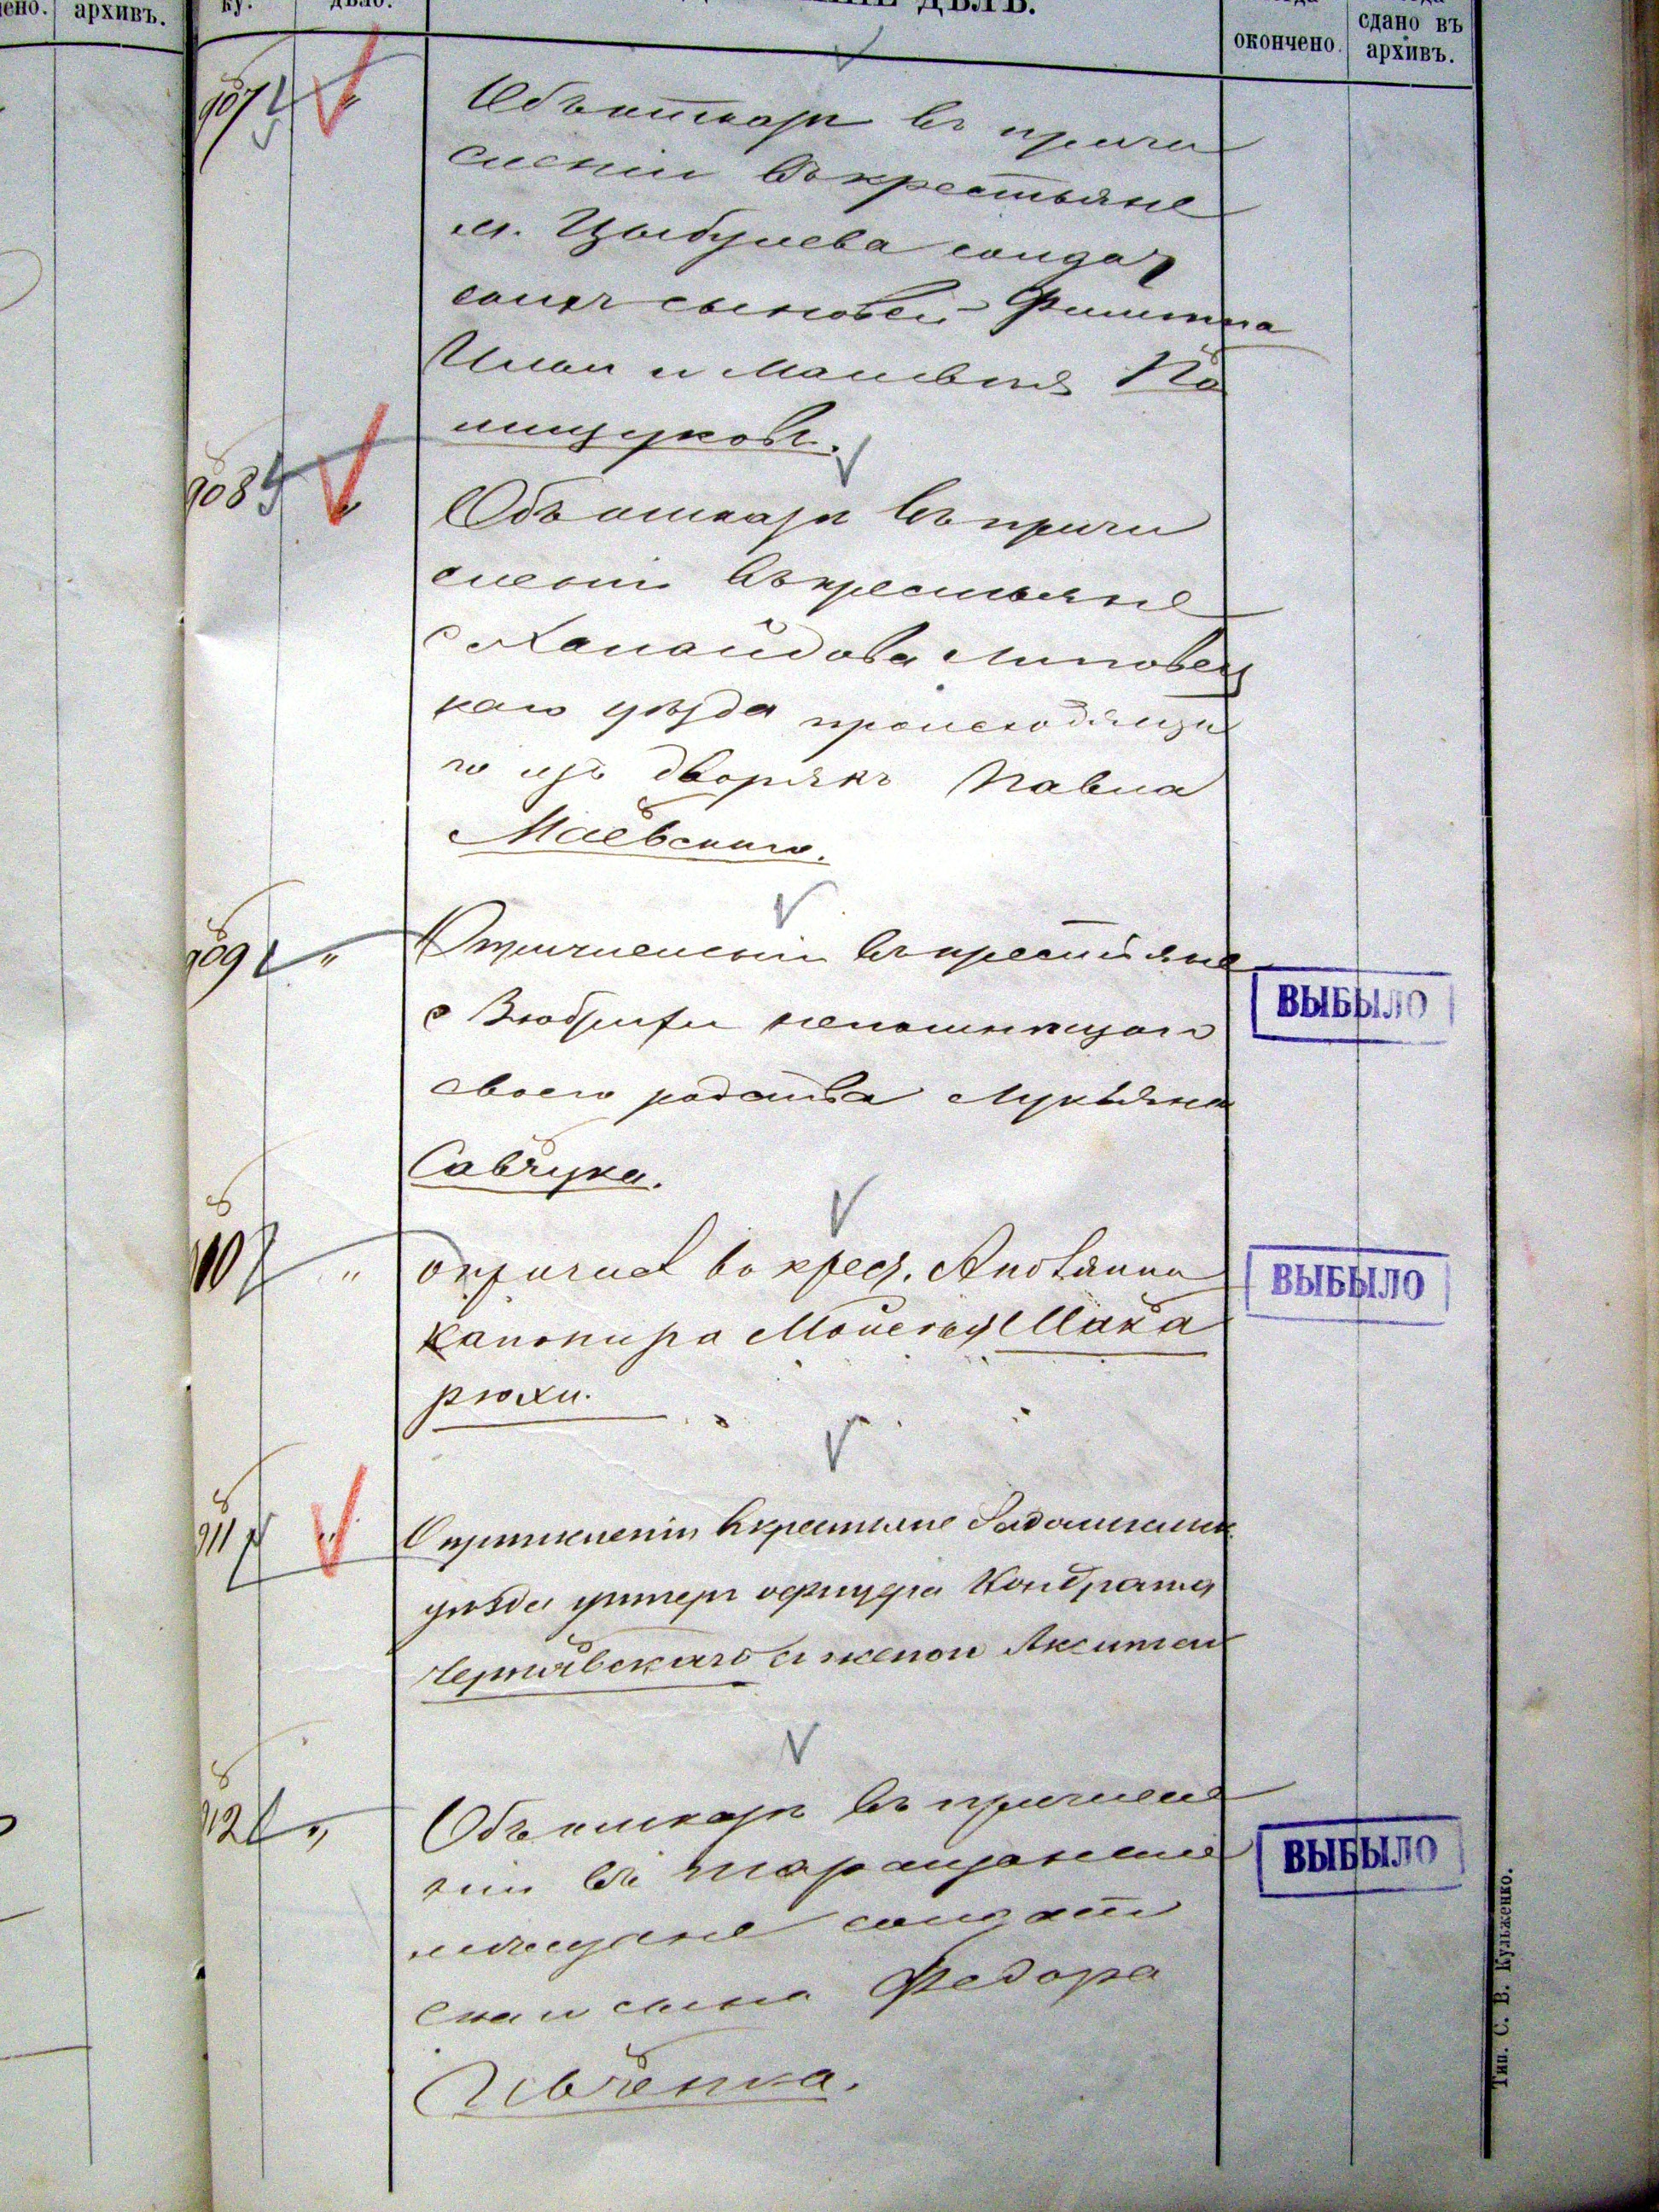 чено.
архивъ.
ку.
дѣло.
ДѢЛЪ.
окончено.
сдано въ
архивъ.
907
Объ отказѣ въ причи
сленіи въ крестьяне
м. Цыбулева солдат
скихъ сыновей Филиппа
Ильи и Матвѣя По
лищуковъ.
908
Объ отказѣ въ причи
сленіи въ крестьяне
с
Липовец
каго уѣзда происходяща
го изъ дворянъ Павла
Маевскаго.
909
О причисленіи въ крестьяне
с непомнящаго
своего родства Лукьяна
Савчука.
ВЫБЫЛО
910
О причисл во крест.
канонира Моисея Мака
рюхи.
ВЫБЫЛО
911
О причисленіи въ крестьяне Радомысльск.
уѣзда унтеръ офицера Кондрата
Чернявскаго и жены
912
Объ отказѣ въ причисле
ніи въ таращанскіе
мѣщане солдат
скаго сына Федора
Ивченка.
ВЫБЫЛО
Тип. С. В. Кульженко.